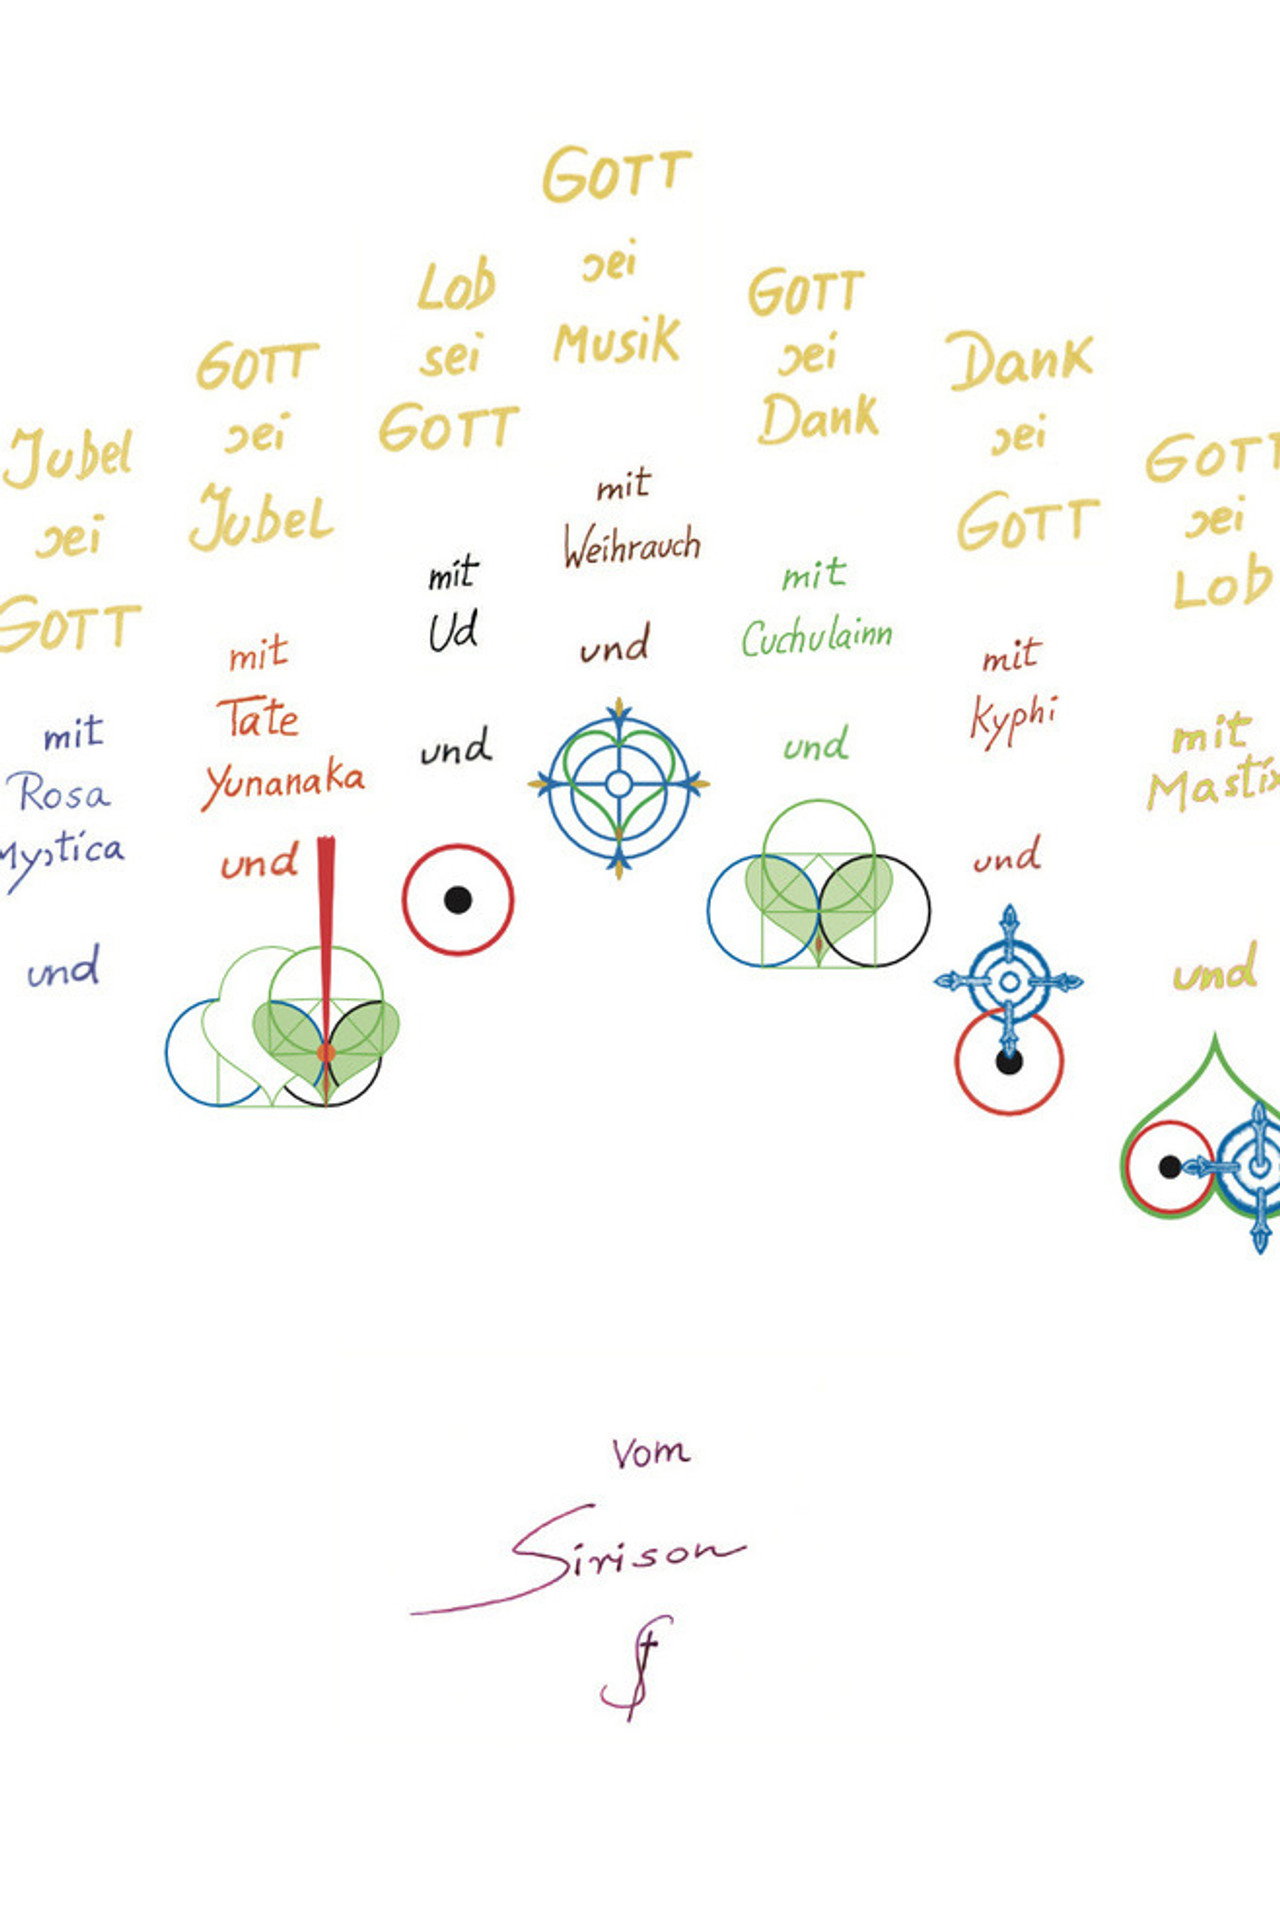 Jubel
sei
GOTT
mit
Rosa
Mystica
und
GOTT
sei
Jubel
mit
Tate
Yunanaka
und
Lob
sei
GOTT
mit
Ud
und
GOTT
sei
Musik
mit
Weihrauch
und
GOTT
sei
Dank
mit
Cuchulainn
und
Dank
sei
GOTT
mit
Kyphi
und
GOTT
sei
Lob
mit
Mastix
und
vom
Sirison